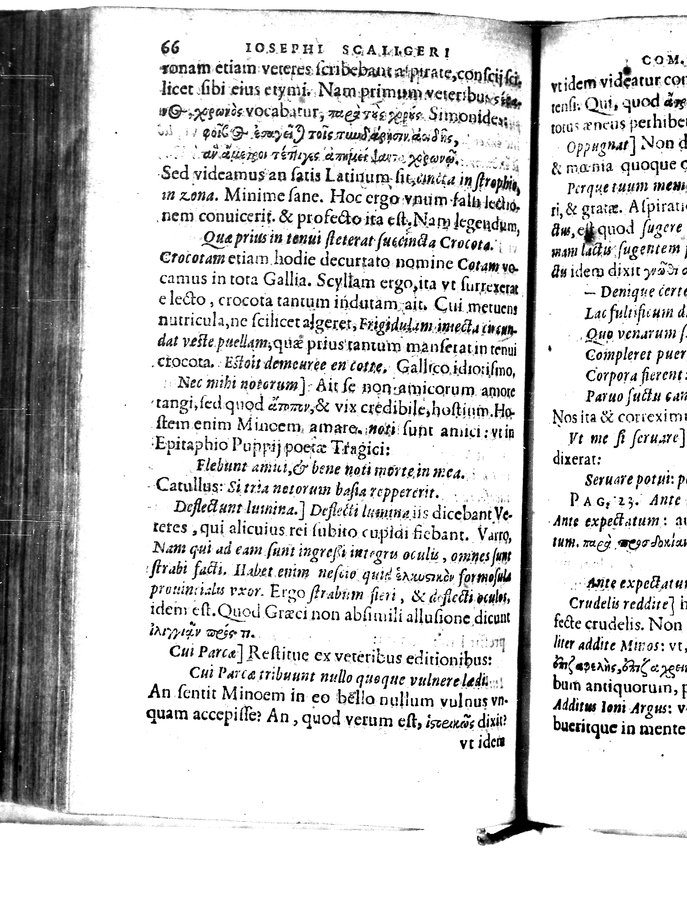 66 IOSEPHI SCALIGERI
ronam etiam veteres ſcribebant aſpirate, conſcij ſci-
licet ſibi eius etymi. Nam primum veteribus
χρωνὸς vocabatur, Simonides
Sed videamus an ſatis Latinum ſit, cincta in ſtrophio,
in zona. Minime ſane. Hoc ergo vnum falsi lectio-
nem conuicerit. & profecto ita eſt. Nam legendum,
Quæ prius in tenui ſteterat ſuccincta Crocota.
Crocotam etiam hodie decurtato nomine Cotam vo-
camus in tota Gallia. Scyllam ergo, ita vt ſurrexerat
e lecto, crocota tantum indutam ait. Cui metuens
nutricula, ne ſcilicet algeret, Frigidulam iniecta circun-
dat veſte puellam, quæ prius tantum manſerat in tenui
crocota. Eſtoit demeurée en cotte. Gallico idiotiſmo,
Nec mihi notorum] Ait ſe non amicorum amore
tangi, ſed quod ἄτοπον, & vix credibile, hoſtium. Ho-
ſtem enim Minoem amare. noti ſunt amici: vt in
Epitaphio Puppij poetæ Tragici:
Flebunt amici, & bene noti morte in mea.
Catullus: Si tria notorum baſia reppererit.
Deflectunt lumina.] Deflecti lumina iis dicebant Ve-
teres, qui alicuius rei ſubito cupidi fiebant. Varro,
Nam qui ad eam ſunt ingreſſi integris oculis, omnes ſunt
ſtrabi facti. Habet enim neſcio quid ἑλκυστικὸν formoſula
prouincialis vxor. Ergo ſtrabum fieri, & deflecti oculos,
idem eſt. Quod Græci non abſimili alluſione dicunt
ἰλιγγιᾷν πρός τι.
Cui Parcæ] Reſtitue ex veteribus editionibus:
Cui Parcæ tribuunt nullo quoque vulnere lædi.
An ſentit Minoem in eo bello nullum vulnus vn-
quam accepiſſe? An, quod verum eſt, dixit?
vt idem
COM.
vt idem videatur con
tenſi. Qui, quod
totus æneus perhibet
Oppugnat] Non d
& mœnia quoque o
Perque tuum mem
ri, & gratæ. Aſpiratio
ctus, eſt quod ſugere
mam lactis ſugentem
ctu idem dixit
— Denique certe
Lac fultificum d
Quo venarum ſ
Compleret puer
Corpora fierent:
Paruo ſuctu
Nos ita & correxim
Vt me ſi ſeruare]
dixerat:
Seruare potui: p
PAG. 23. Ante
Ante expectatum: au
tum.
Ante expectatum
Crudelis reddite] h
fecte crudelis. Non
liter addite Minos: vt,
bum antiquorum, p
Additus Ioni Argus: v
bueritque in mente